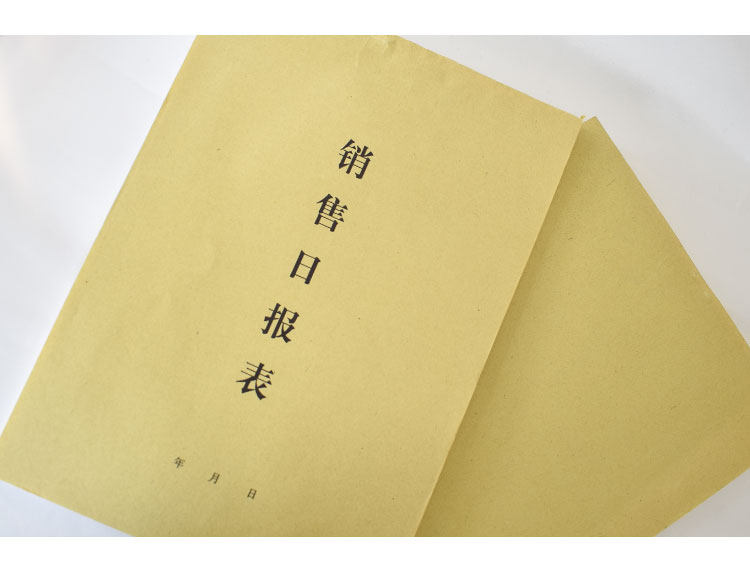 销售日报表
年 月 日